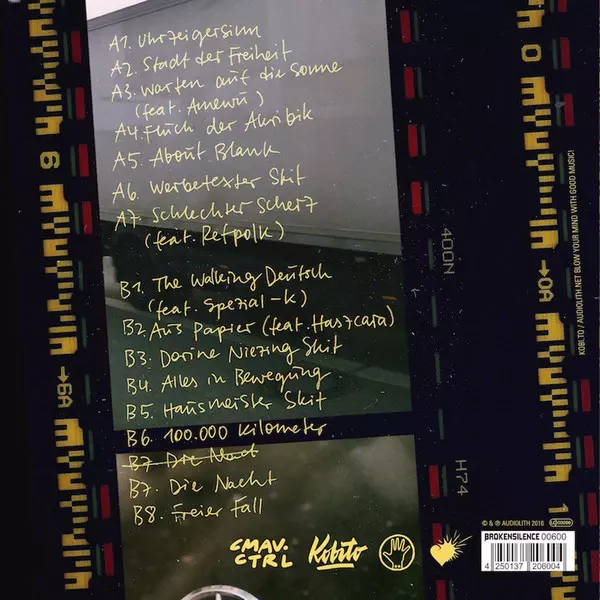 A1. Uhrzeigersinn
A2. Stadt der Freiheit
A3. Warten auf die Sonne
(feat. Amewu)
A4. Fluch der Akribik
A5. About Blank
A6. Werbetexter Skit
A7. Schlechter Scherz
(feat. Refpolk)
B1. The Walking Deutsch
(feat. Spezial-K)
B2. Aus Papier (feat. Haszcara)
B3. Dorine Niezing Skit
B4. Alles in Bewegung
B5. Hausmeister Skit
B6. 100.000 Kilometer
B7 Die Nact
B7. Die Nacht
B8. Freier Fall
CMAV.
CTRL
Kobito
6
→6A
0
→0A
1
400N
H74
KOBI.TO / AUDIOLITH.NET BLOW YOUR MIND WITH GOOD MUSIC!
© & ℗ AUDIOLITH 2016
BROKENSILENCE 00600
4 250137 206004